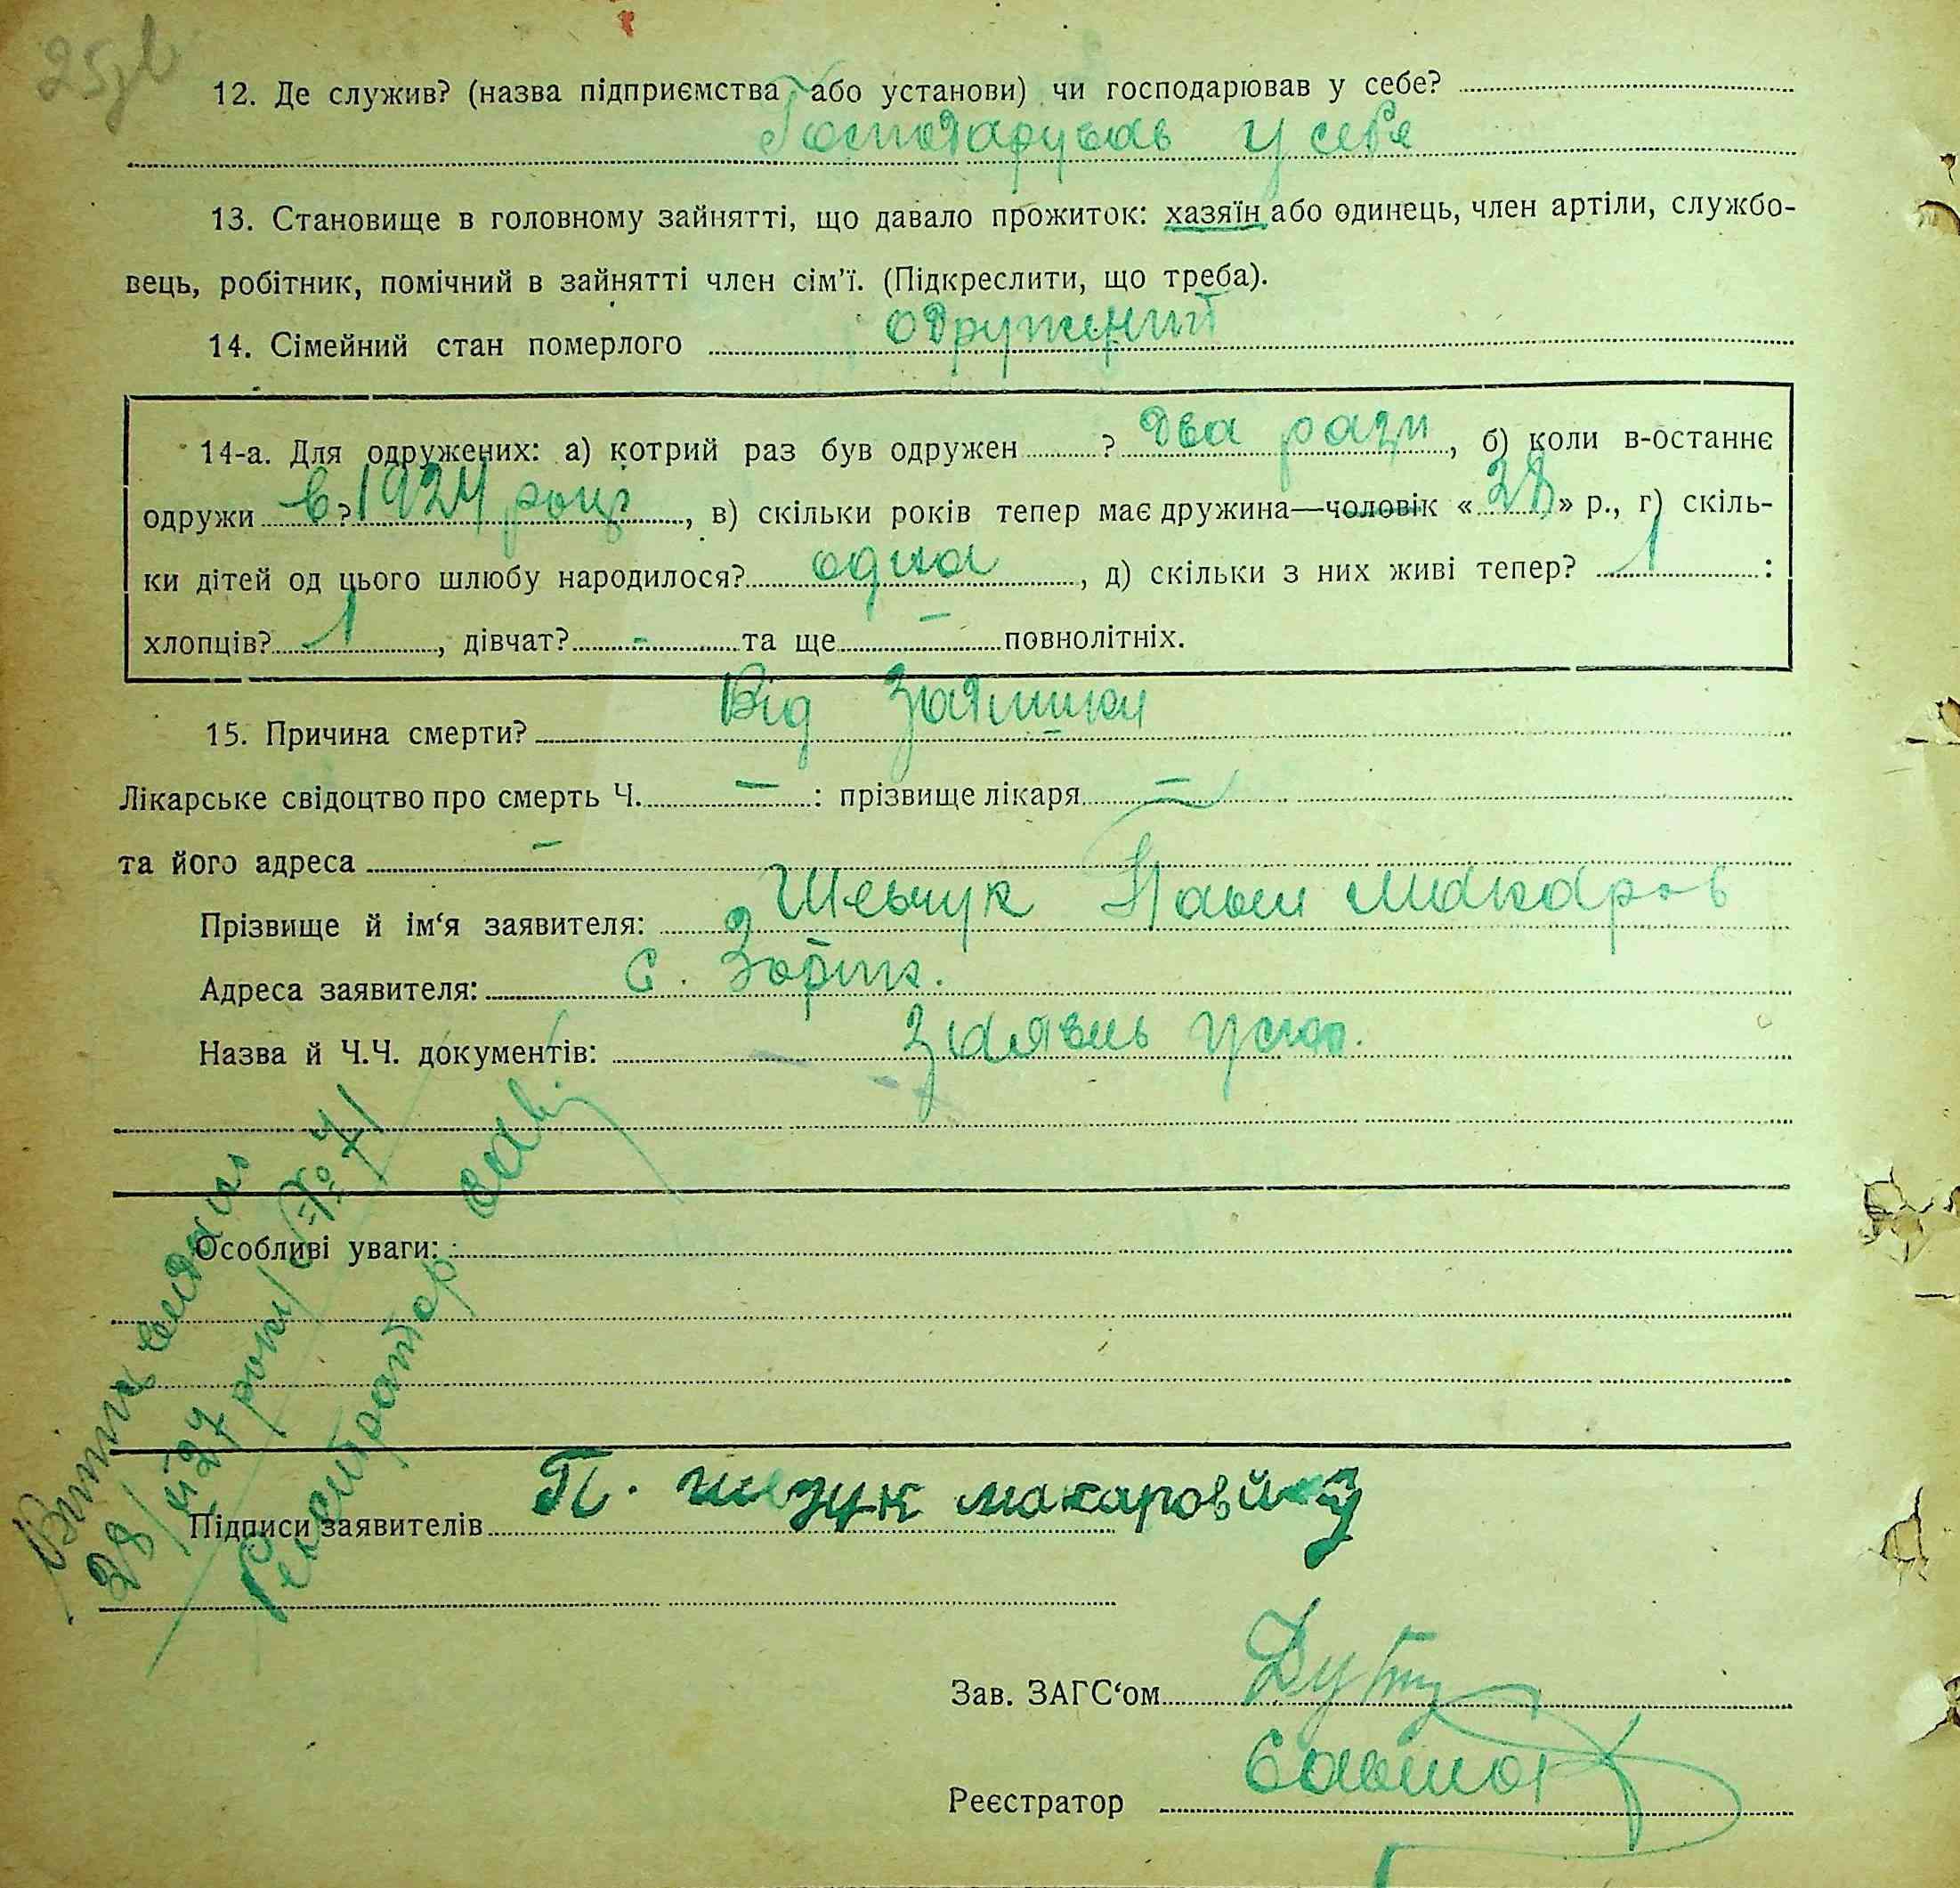 12. Де служив? (назва підприємства або установи) чи господарював у себе?
Господарував у себе
13. Становище в головному зайнятті, що давало прожиток: хазяїн або одинець, член артіли, службо-
вець, робітник, помічний в зайнятті член сім'ї. (Підкреслити, що треба).
14. Сімейний стан померлого одружений
14-а. Для одружених: а) котрий раз був одружен ? два рази, б) коли в-останнє
одружи в ? 1924 році, в) скільки років тепер має дружина—чоловік «28» р., г) скіль-
ки дітей од цього шлюбу народилося? одна, д) скільки з них живі тепер? 1 :
хлопців? 1, дівчат? - та ще – повнолітніх.
15. Причина смерти? Від
Лікарське свідоцтво про смерть Ч. — : прізвище лікаря —
та його адреса –
Прізвище й ім'я заявителя: Шевчук Павел Макаров
Адреса заявителя: с.
Назва й Ч.Ч. документів:
Особливі уваги:
28/ 27 року № 7/
Реєстратор
Підписи заявителів П. макарович
Зав. ЗАГС'ом
Реєстратор